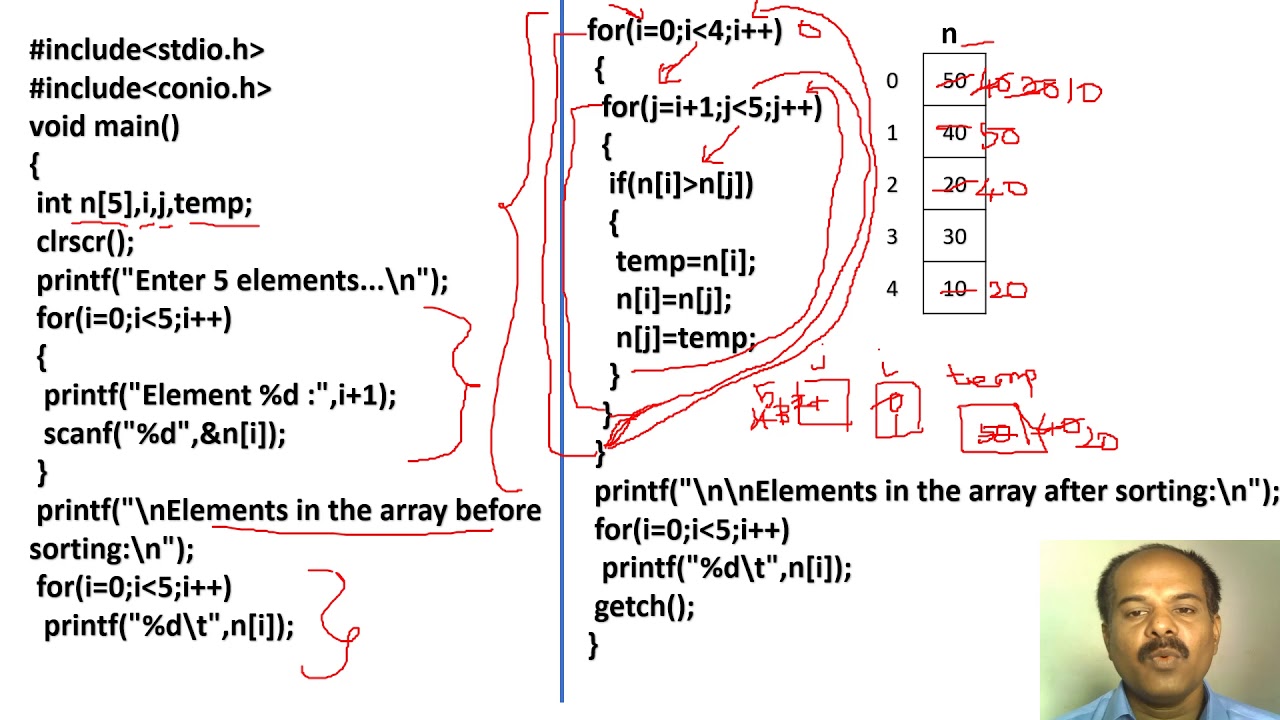 #include<stdio.h>
#include<conio.h>
void main()
{
int n[5],i,j,temp;
clrscr();
printf("Enter 5 elements...\n");
for(i=0;i<5;i++)
{
printf("Element %d :",i+1);
scanf("%d",&n[i]);
}
printf("\nElements in the array before
sorting:\n");
for(i=0;i<5;i++)
printf("%d\t",n[i]);
for(i=0;i<4;i++) 0
{
for(j=i+1;j<5;j++)
{
if(n[i]>n[j])
{
temp=n[i];
n[i]=n[j];
n[j]=temp;
}
}
}
printf("\n\nElements in the array after sorting:\n");
for(i=0;i<5;i++)
printf("%d\t",n[i]);
getch();
}
n
0 50 40 20 10
1 40 50
2 20 40
3 30
4 10 20
j i temp
0
1
50 40 20